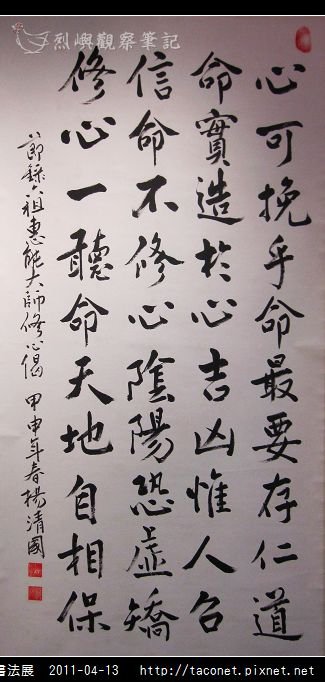 烈嶼觀察筆記
心可挽乎命最要存仁道
命實造於心吉凶惟人召
信命不修心陰陽恐虛矯
修心一聽命天地自相保
節錄六祖惠能大師修心偈 甲申年春楊清國
書法展 2011-04-13 http://taconet.pixnet.net